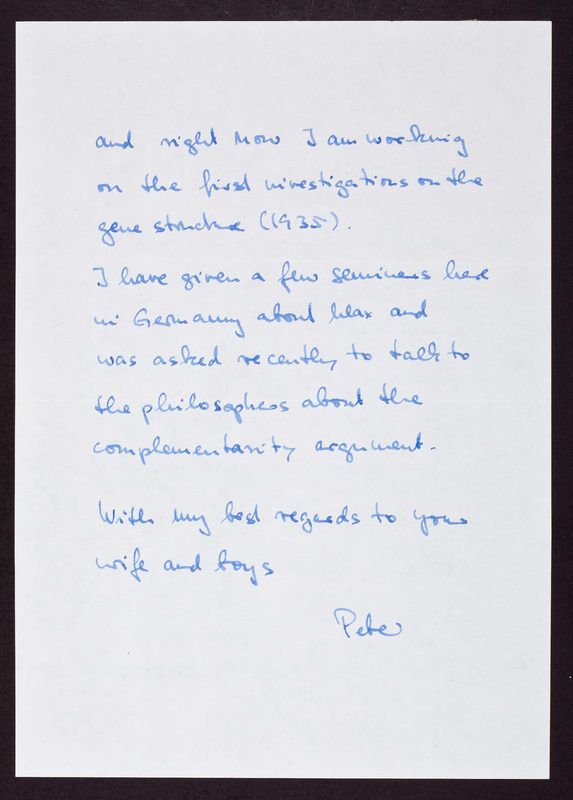 and right now I am working
on the first investigations on the
gene structure (1935).
I have given a few seminars here
in Germany about Max and
was asked recently to talk to
the philosophers about the
complementarity argument.
With my best regards to your
wife and boys
Peter